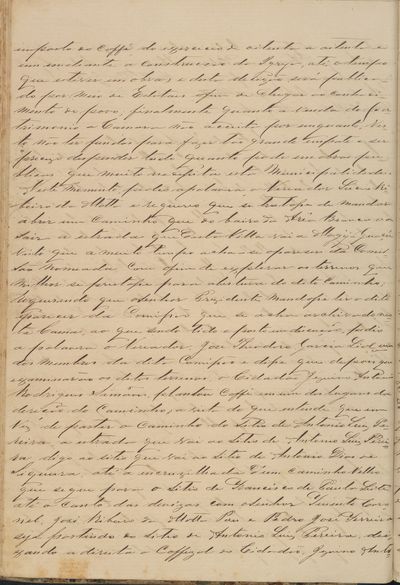 imposto do Caffé do exercicio de oitenta a oitenta e
um mediante a construcção da Igreja, até o tempo
que estiver em obras, e desta decisão será publica-
do por meio de Editaes afim de chegar ao conheci-
mento do povo, finalmente quanto a venda do pa-
trimonio a Camara não aceita por emquanto, vis-
to não ter fundos para fazer tão grande
despender tudo quanto pode em obras pu-
blicas que muito necessita este Municipalidade.
Neste momento pedio a palavra o Vereador
beiro da Motta e requereu que se trate de mandar
abrir um Caminho que do bairro do Rio Branco vá
sair a estrada que desta Villa vai a
visto que a muito tempo acha-se o parecer da Comis-
são nomeada com o fim de explorar os terrenos que
melhor se preste para abertura do dito Caminho,
requerendo que o Senhor Presidente mande ler o dito
parecer da Comissão que se acha archivado nes-
ta Camara, ao que sendo lido e posto em discussão, pedio
a palavra o Vereador, José Theodoro Garcia Leal, um
dos Membros da dita Comissão e disse que depois que
examinarão os ditos terrenos, o Cidadão Jeguino Antonio
Rodrigues Simões, plantou Caffé em um dos lugares da
direcção do Caminho, a vista do que intende que em
vez de partir o Caminho do Sitio de Antonio Luiz Pe-
reira, a estrada que vai ao Sitio de Antonio Luiz Perei-
ra, digo ao sitio que vai ao Sitio de Antonio Dias de
Siqueira, até a incruzilhada d'um Caminho Velho
que segue para o Sitio de Francisco de Paula Leite
até o Canto das divizas com o Senhor Tenente Coro-
nel, José Ribeiro da Motta Paes e Pedro José Ferreira
seja partindo do Sitio de Antonio Luiz Pereira, dei-
xando a direita o Caffezal do Cidadão, Jeguino Anto-